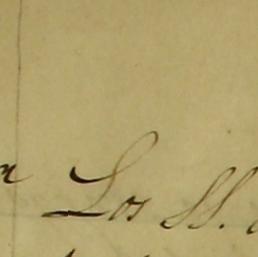 Los SS.